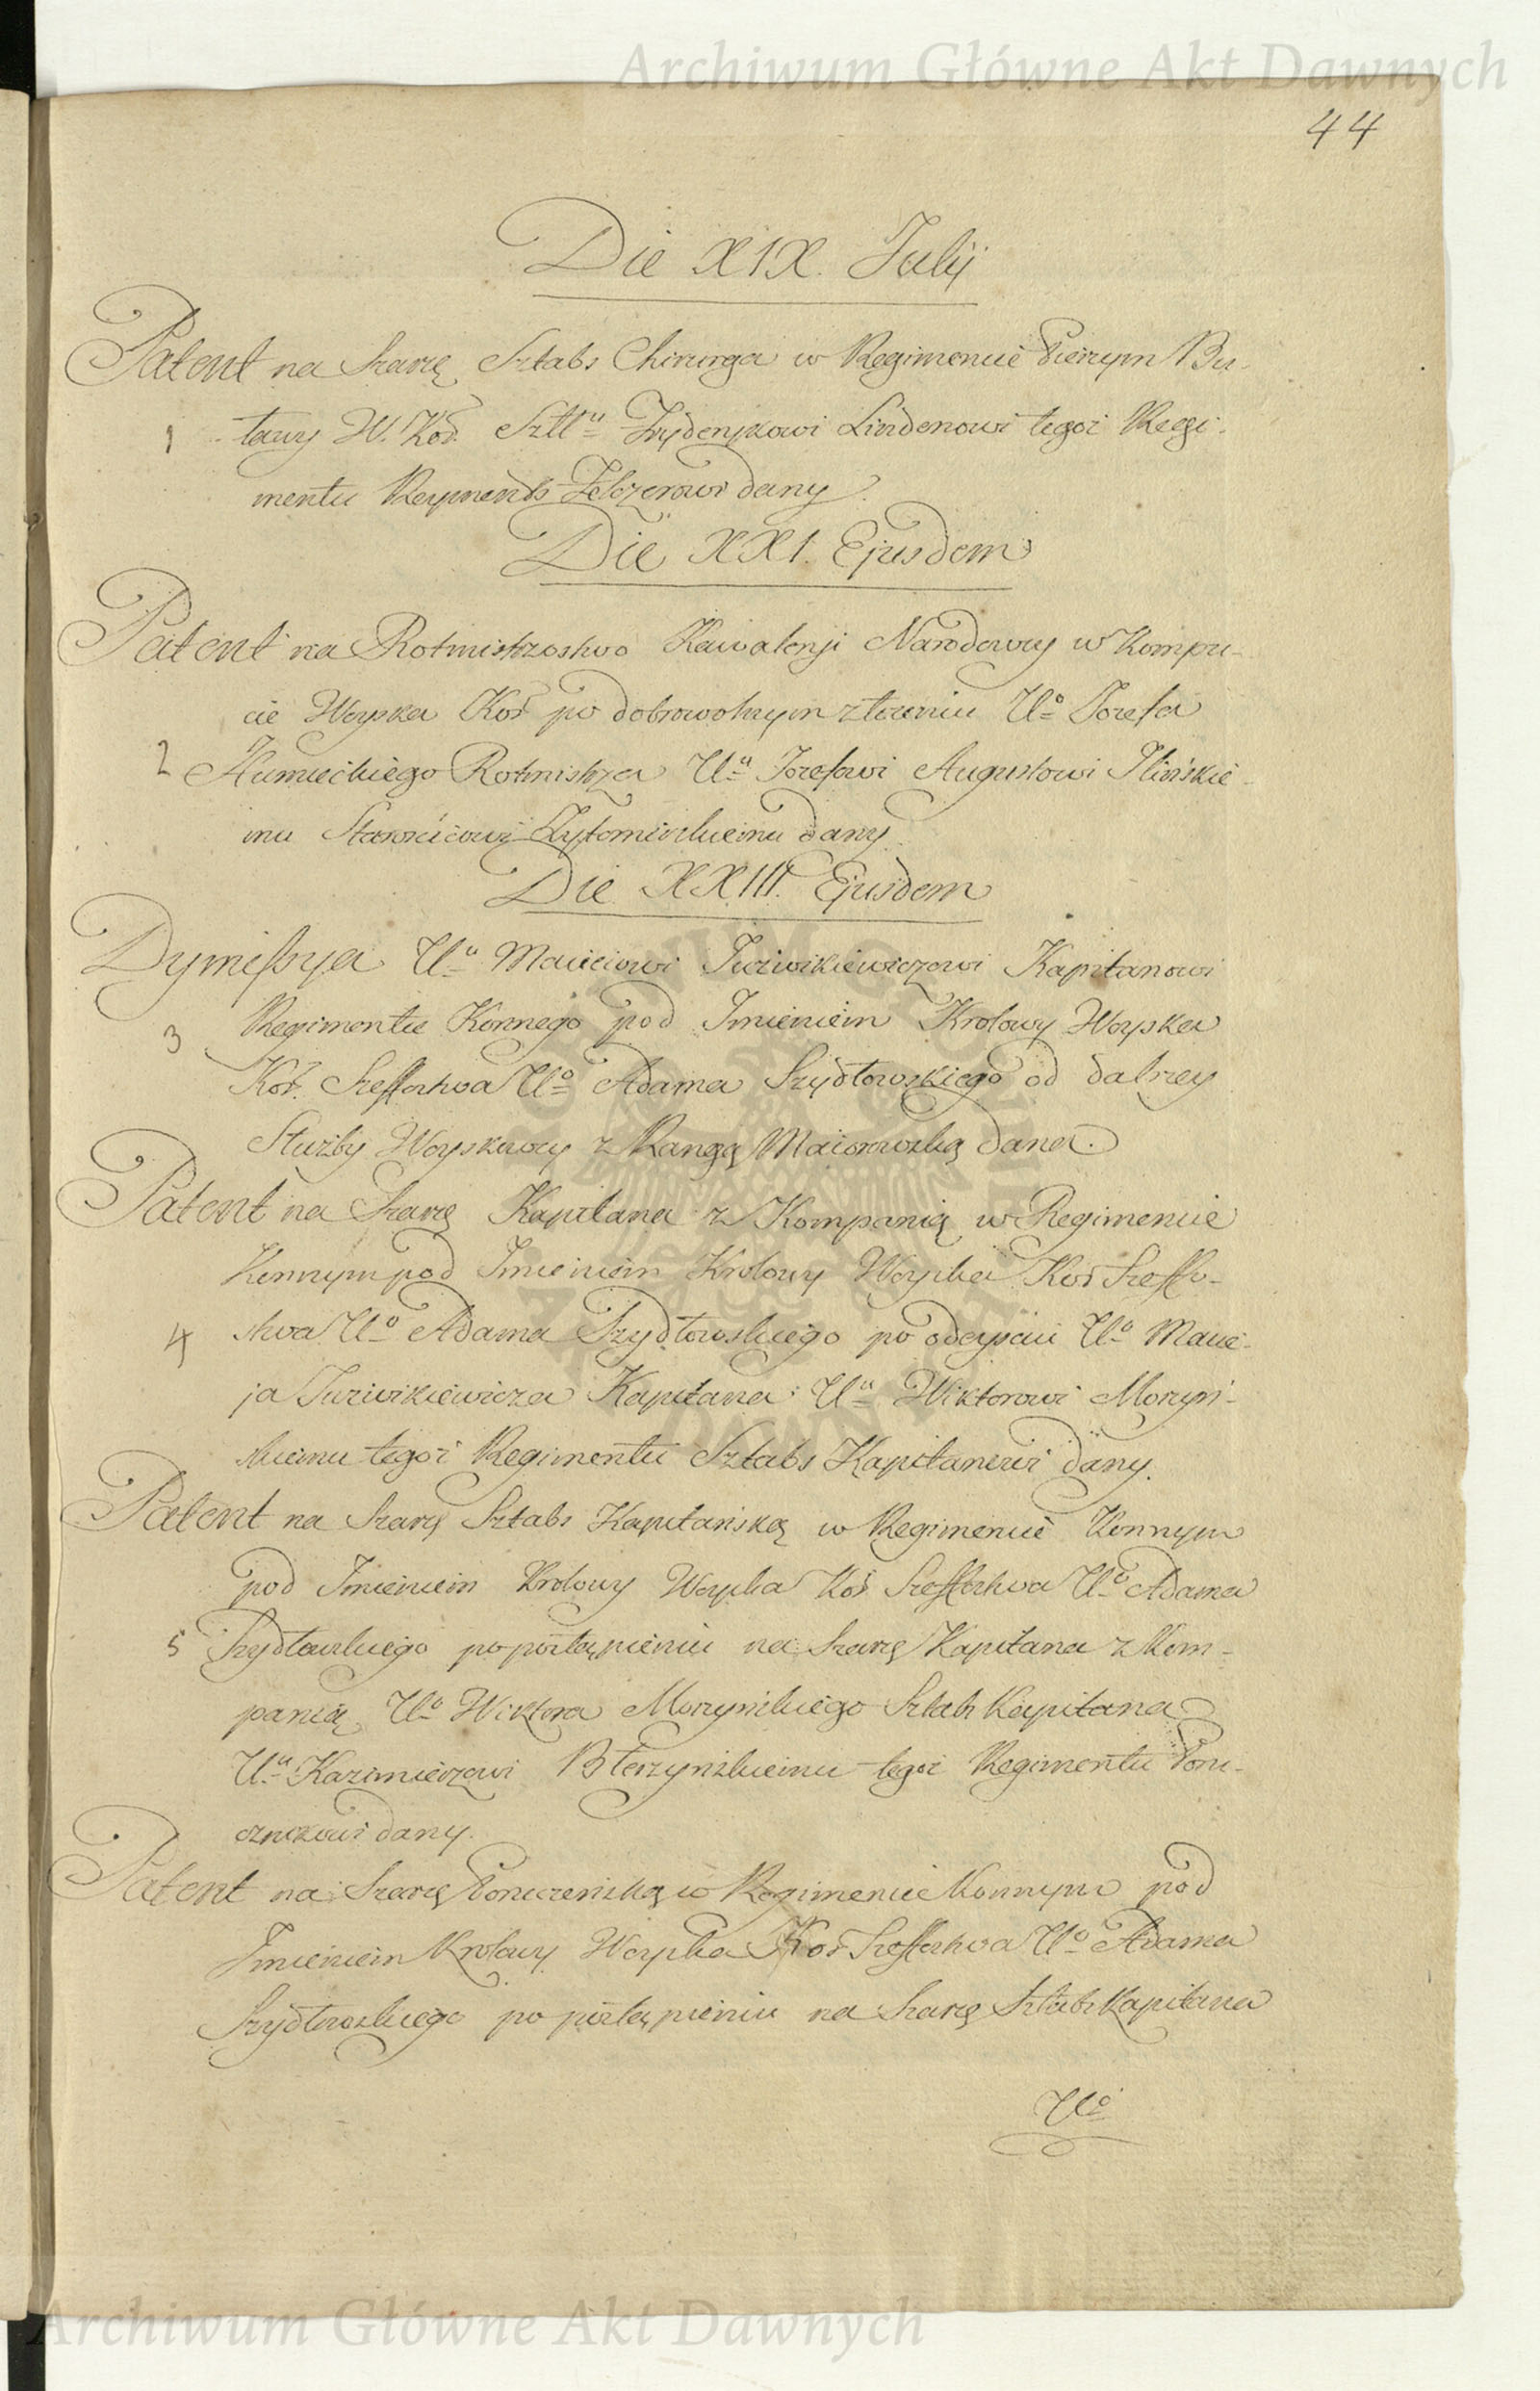 Archiwum Główne Akt Dawnych
44
Die XIX. Julij
Patent na Szarżę Sztabs Chirurga w Regimencie Pieszym Bu-
1 ławy W. Kor. Sztt<sup>u</sup> Frydерykowi Lindenowi tegoż Regi-
mentu Reyments Felczerowi dany.
Die XXI. Ejusdem
Patent na Rotmistrzostwo Kawaleryi Narodowey w Kompu-
cie Woyska Kor. po dobrowolnym złożeniu Ur<sup>o</sup> Jozefa
2 Humieckiego Rotmistrza Ur<sup>u</sup> Jozefowi Augustowi Ilinskie-
mu Starościcowi Żytomirskiemu dany.
Die XXIII. Ejusdem
Dymissya Ur<sup>u</sup> Maciejowi Kapitanowi
3 Regimentu Konnego pod Imieniem Krolowy Woyska
Kor. Szeffostwa Ur<sup>o</sup> Adama Szydłowskiego od dalszey
Służby Woyskowey z Rangą Maiorowską dana.
Patent na Szarżę Kapitana z Kompanią w Regimencie
Konnym pod Imieniem Krolowy Woyska Kor. Szeffo-
4 stwa Ur<sup>o</sup> Adama Szydłowskiego po odeyściu Ur<sup>o</sup> Macie-
ja Kapitana Ur<sup>u</sup> Wiktorowi Morzyń-
skiemu tegoż Regimentu Sztabs Kapitanowi dany.
Patent na Szarżę Sztabs Kapitańską w Regimencie Konnym
pod Imieniem Krolowy Woyska Kor. Szeffostwa Ur<sup>o</sup> Adama
5 Szydłowskiego po postąpieniu na Szarżę Kapitana z Kom-
panią Ur<sup>o</sup> Wiktora Morzyńskiego Sztabs Kapitana
Ur<sup>u</sup> Kazimierzowi tegoż Regimentu Poru-
cznikowi dany.
Patent na Szarżę Poruczeńską w Regimencie Konnym pod
Imieniem Krolowy Woyska Kor. Szeffostwa Ur<sup>o</sup> Adama
Szydłowskiego po postąpieniu na Szarżę Sztabs Kapitana
Ur<sup>o</sup>
Archiwum Główne Akt Dawnych